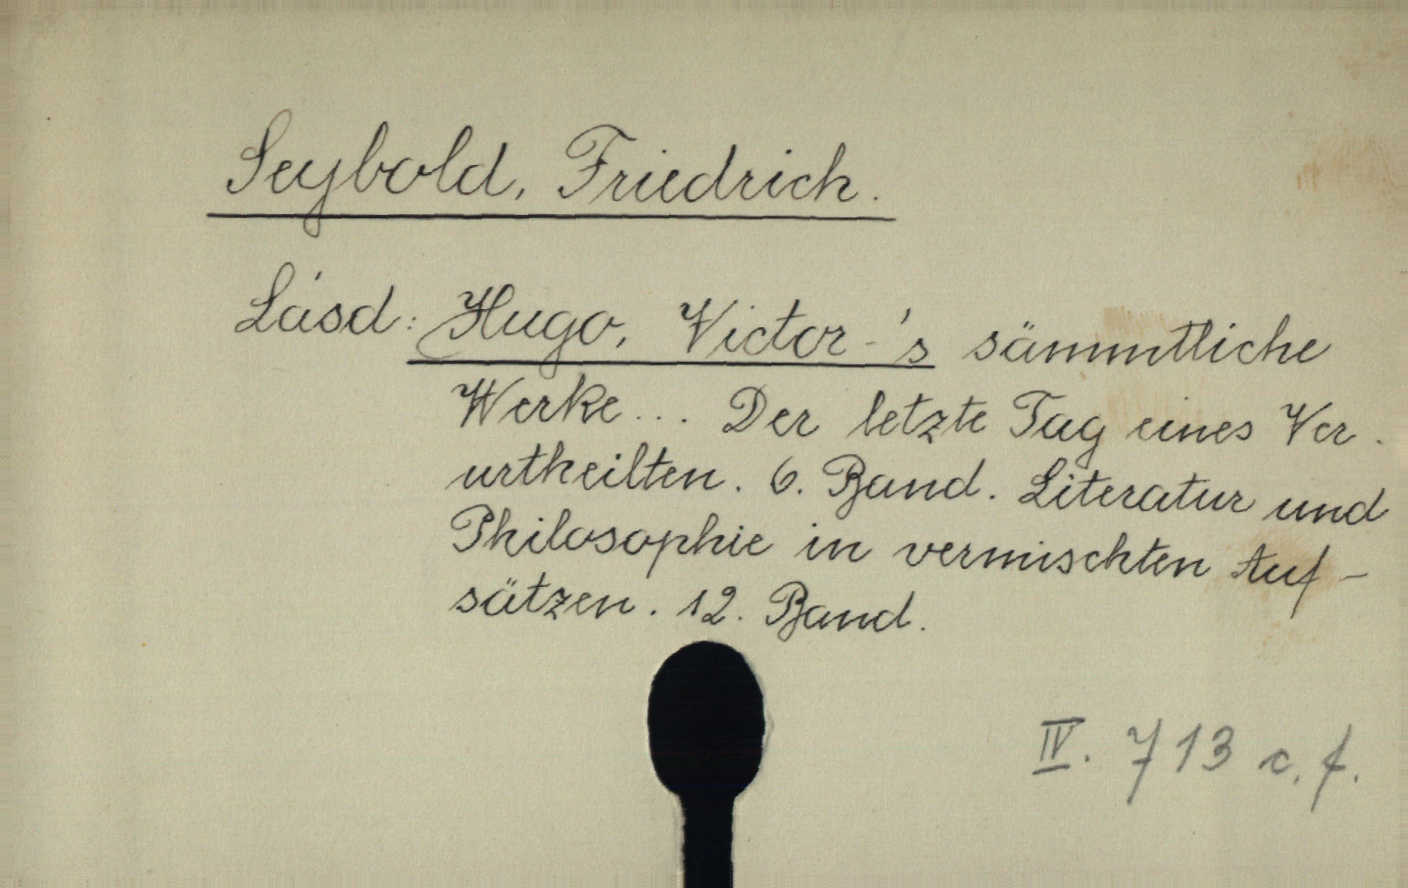 Seybold, Friedrich.
Lásd: Hugo, Victor-'s sämmtliche
Werke... Der letzte Tag eines Ver-
urtheilten. 6. Band. Literatur und
Philosophie in vermischten Auf-
sätzen. 12. Band.
IV. 713 c. f.